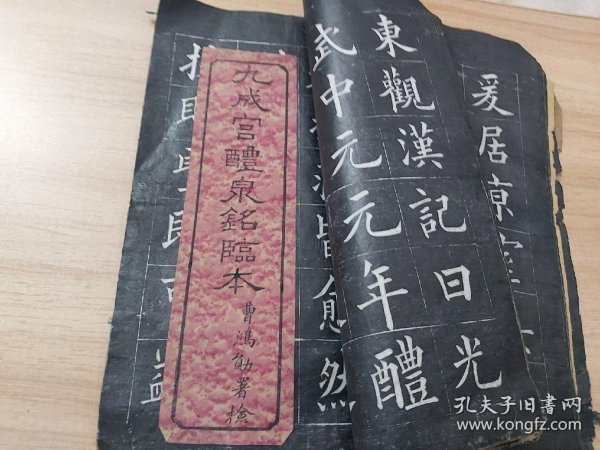 爰居京室
東觀漢記曰光
武中元元年醴
皆愈然
九成宮醴泉銘臨本
曹鴻勛署檢
可益
孔夫子旧書网
www.kongfz.com